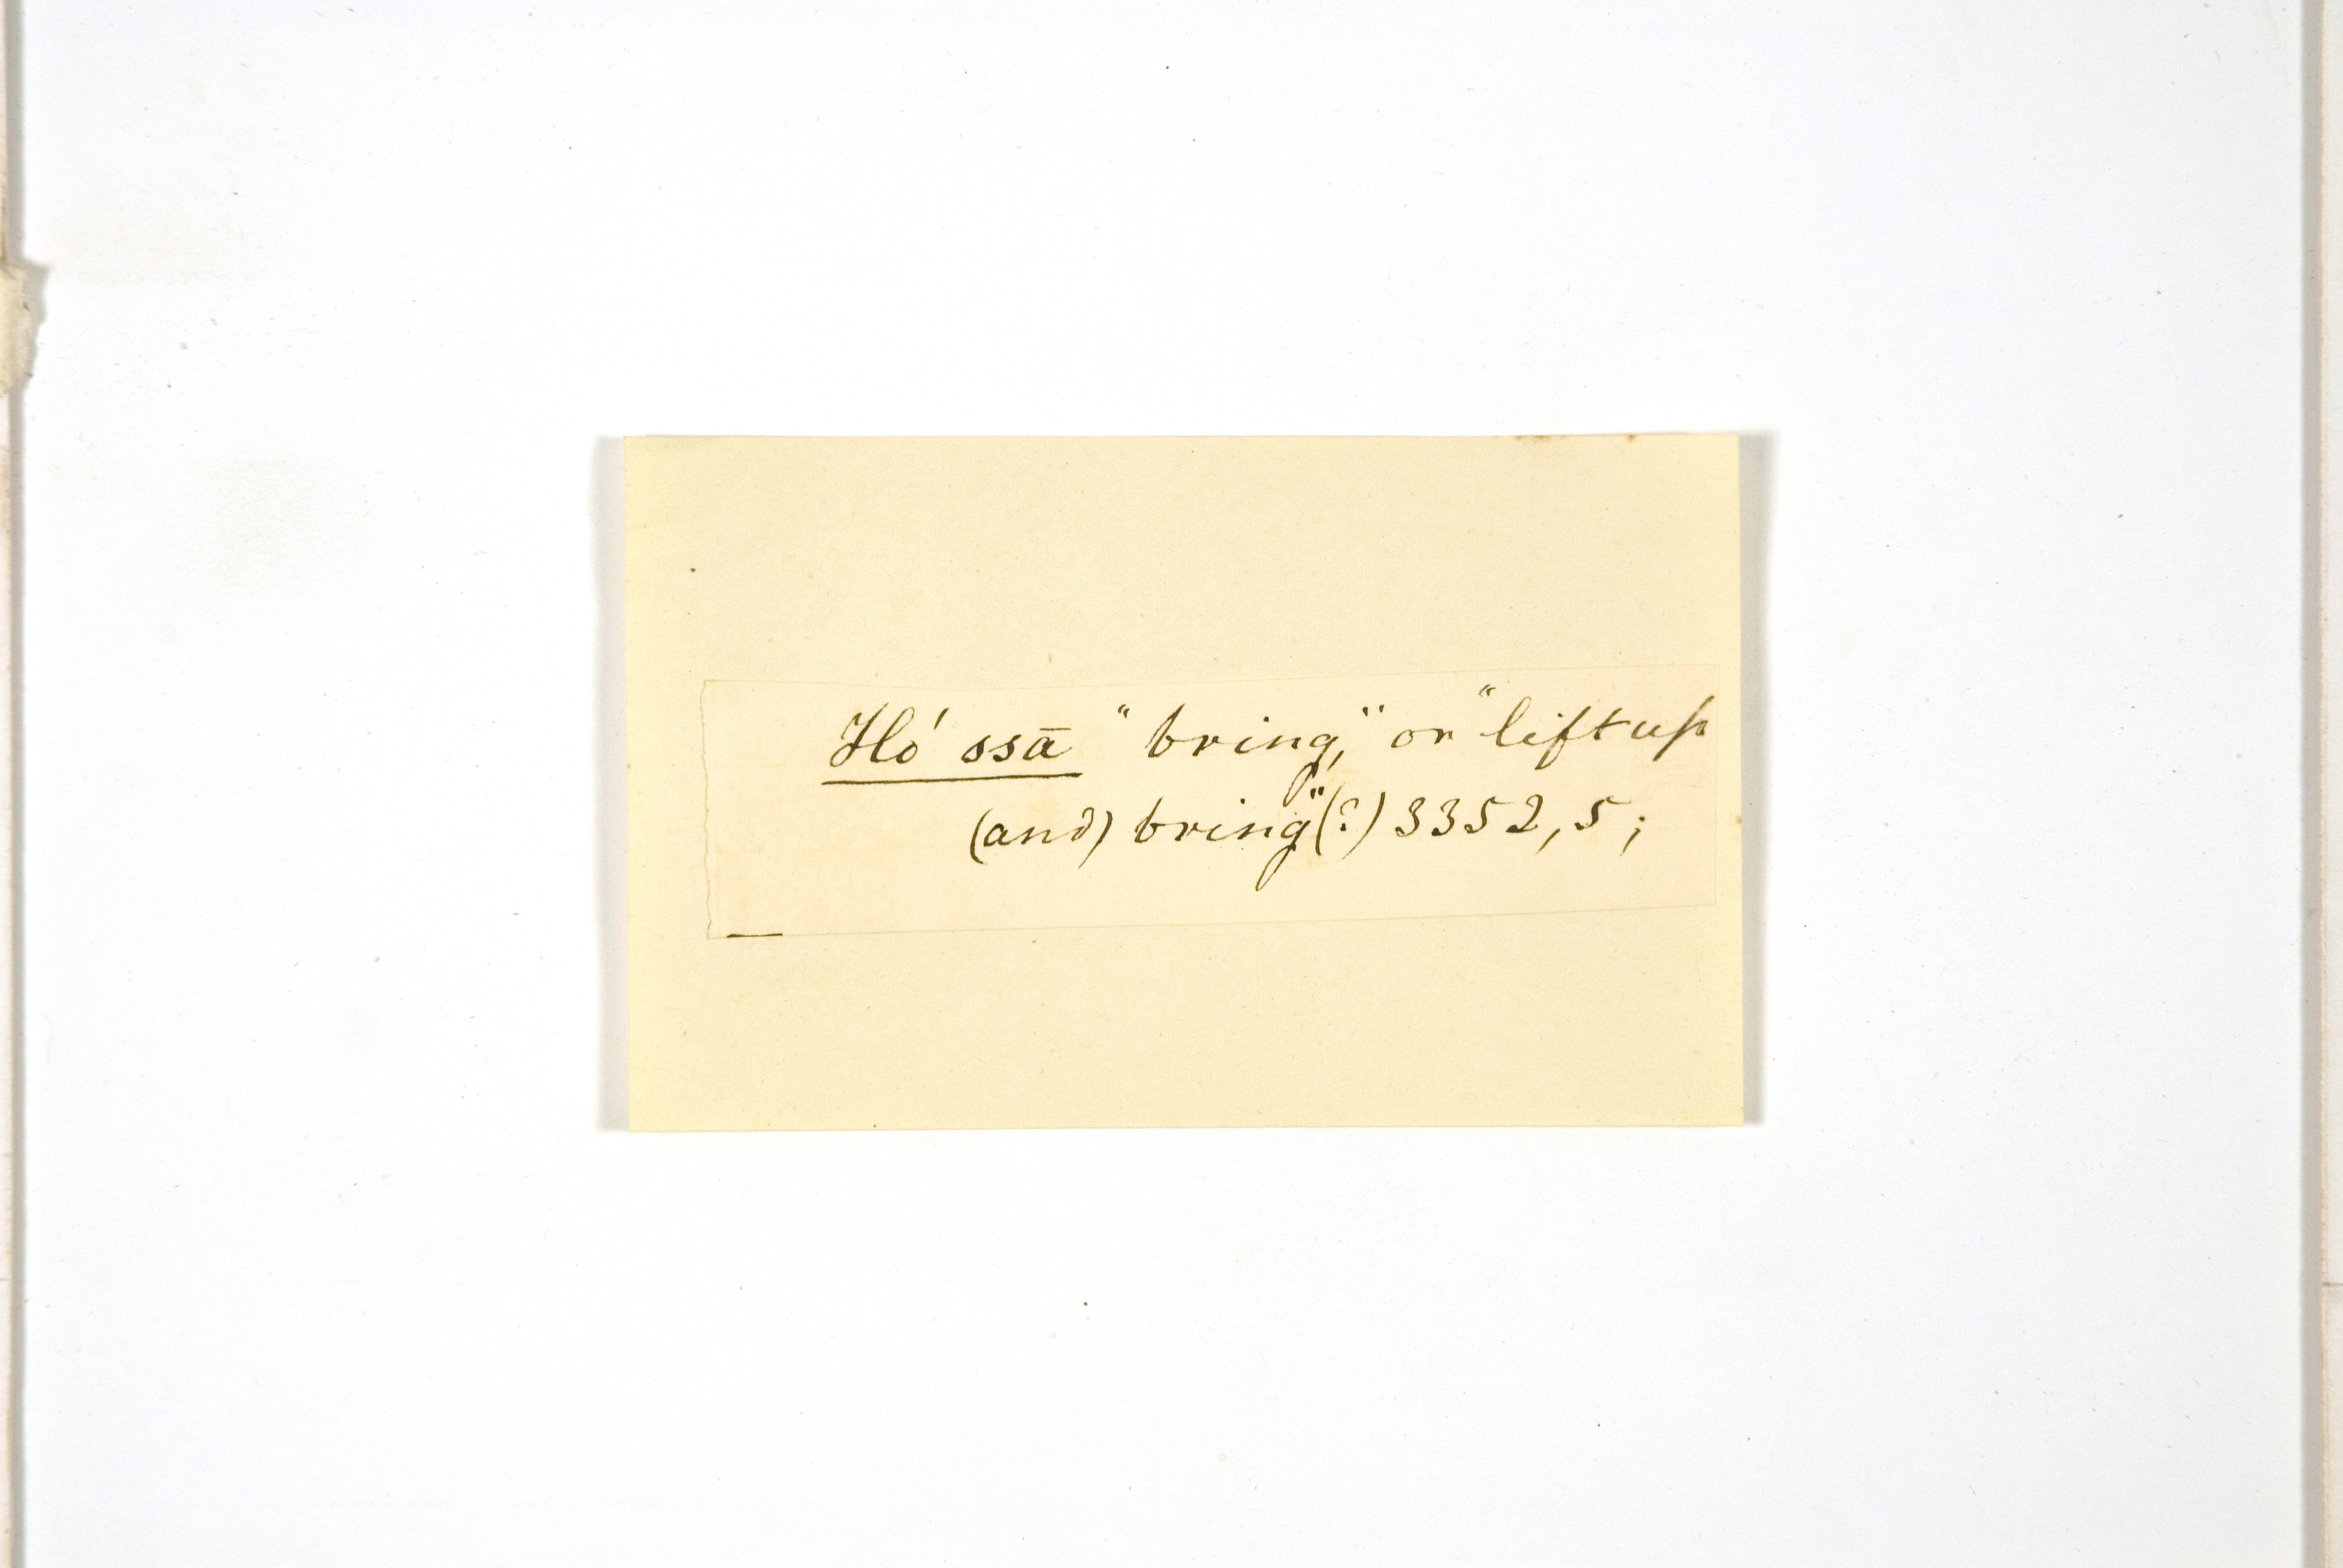 Hó ssā "bring," or "lift up
(and) bring"(?) 3352, 5;